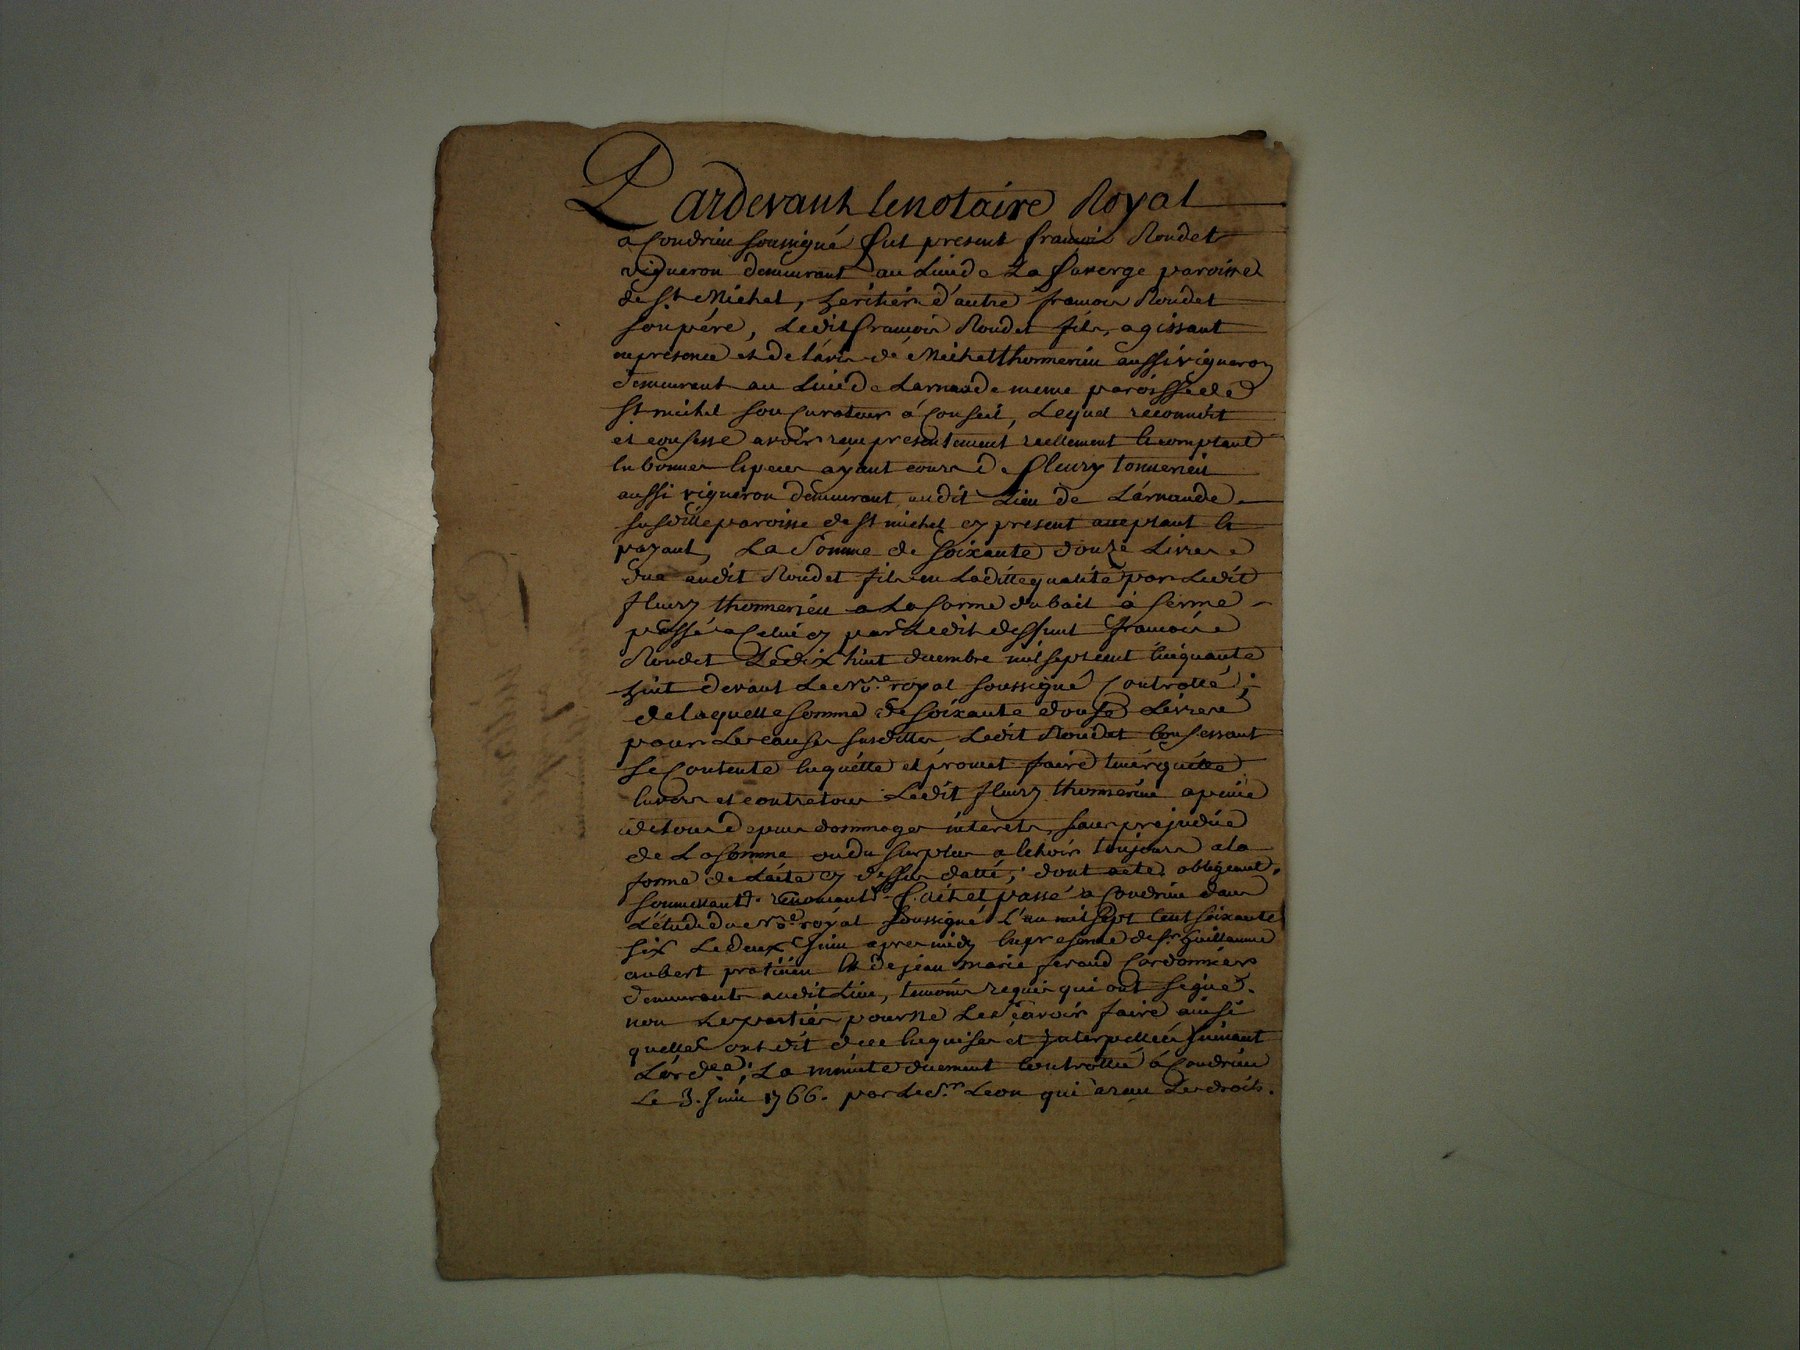 Pardevant le notaire Royal
a Condrieu soussigné fut present francois Roudet
vigneron demeurant au Lieu de La faverge paroisse
de St Michel, heritier d'autre francois Roudet
son pére, Ledit francois Roudet fils, agissant
en presence et de l'avis de Michel thomerieu aussi vigneron
demeurant au Lieu de Larnaude meme paroisse de
St michel son curateur a conseil, Lequel reconnoit
et confesse avoir reçu presentement reellement et comptant
en bonnes especes ayant cours de fleury tomerieu
aussi vigneron demeurant audit Lieu de Larnaude
susditte paroisse de St michel cy present acceptant et
payant, La Somme de soixante douze Livres
due audit Roudet fils en Laditte qualité par Ledit
fleury thomerieu a La forme du bail a ferme
passé a Celui cy par Ledit deffunt francois
Roudet Le dix huit decembre mil sept cent cinquante
huit devant Le Nre. royal soussigné Controllé;
de laquelle somme de soixante douse Livres
pour Les causes susdittes Ledit Roudet confessant
se Contente en quitte et promet faire tenir quitte
envers et contre tous Ledit fleury thomerieu a peine
de tous depens dommages interets, sans prejudice
de La somme ou du surplus a echoir toujours a la
forme de L'acte cy dessus datté; dont acte obligeant.
soumettant. renoncant. Fait et passé a Condrieu dans
L'étude du Nre. royal soussigné L'an mil sept cent soixante
six Le deux Juin apres midy en presence de Sr. Guillaume
aubert praticien et de jean marie feraud Cordonnier
demeurants audit Lieu, temoins requis qui ont signé.
non Les parties pour ne Le sçavoir faire ainsi
quelles ont dit de ce enquises et Interpellées suivant
L'ordce; La minute duement Controllée a Condrieu
Le 3. Juin 1766. par Le Sr. Leon qui a reçu Les droits.